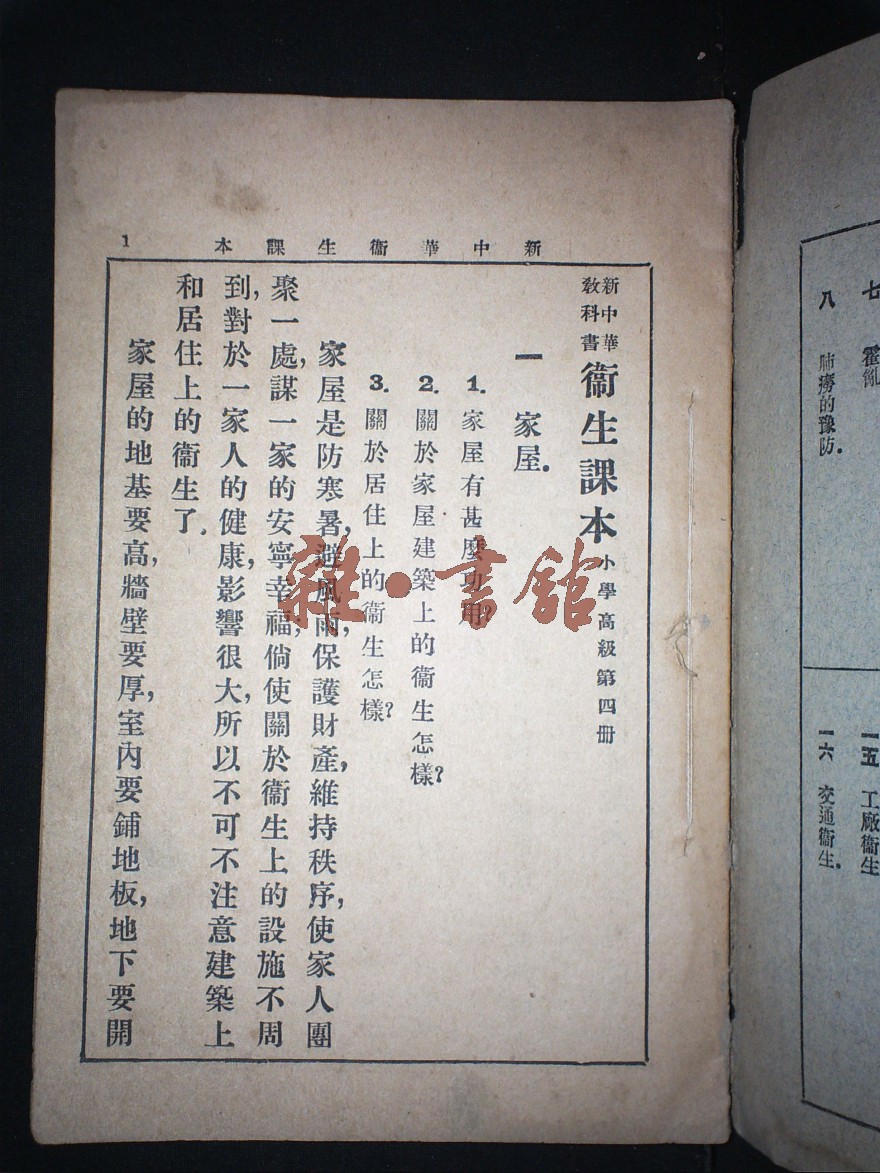 新中華衞生課本
1
新中華
教科書
衞生課本 小學高級第四册
一 家屋.
1. 家屋有甚麼功用?
2. 關於家屋建築上的衞生怎樣?
3. 關於居住上的衞生怎樣?
家屋是防寒暑,避風雨,保護財產,維持秩序,使家人團
聚一處,謀一家的安寧幸福;倘使關於衞生上的設施不周
到,對於一家人的健康,影響很大,所以不可不注意建築上
和居住上的衞生了.
家屋的地基要高,牆壁要厚,室內要鋪地板,地下要開
雜·書館
七 霍亂
八 肺癆的豫防.
一五 工廠衞生
一六 交通衞生.